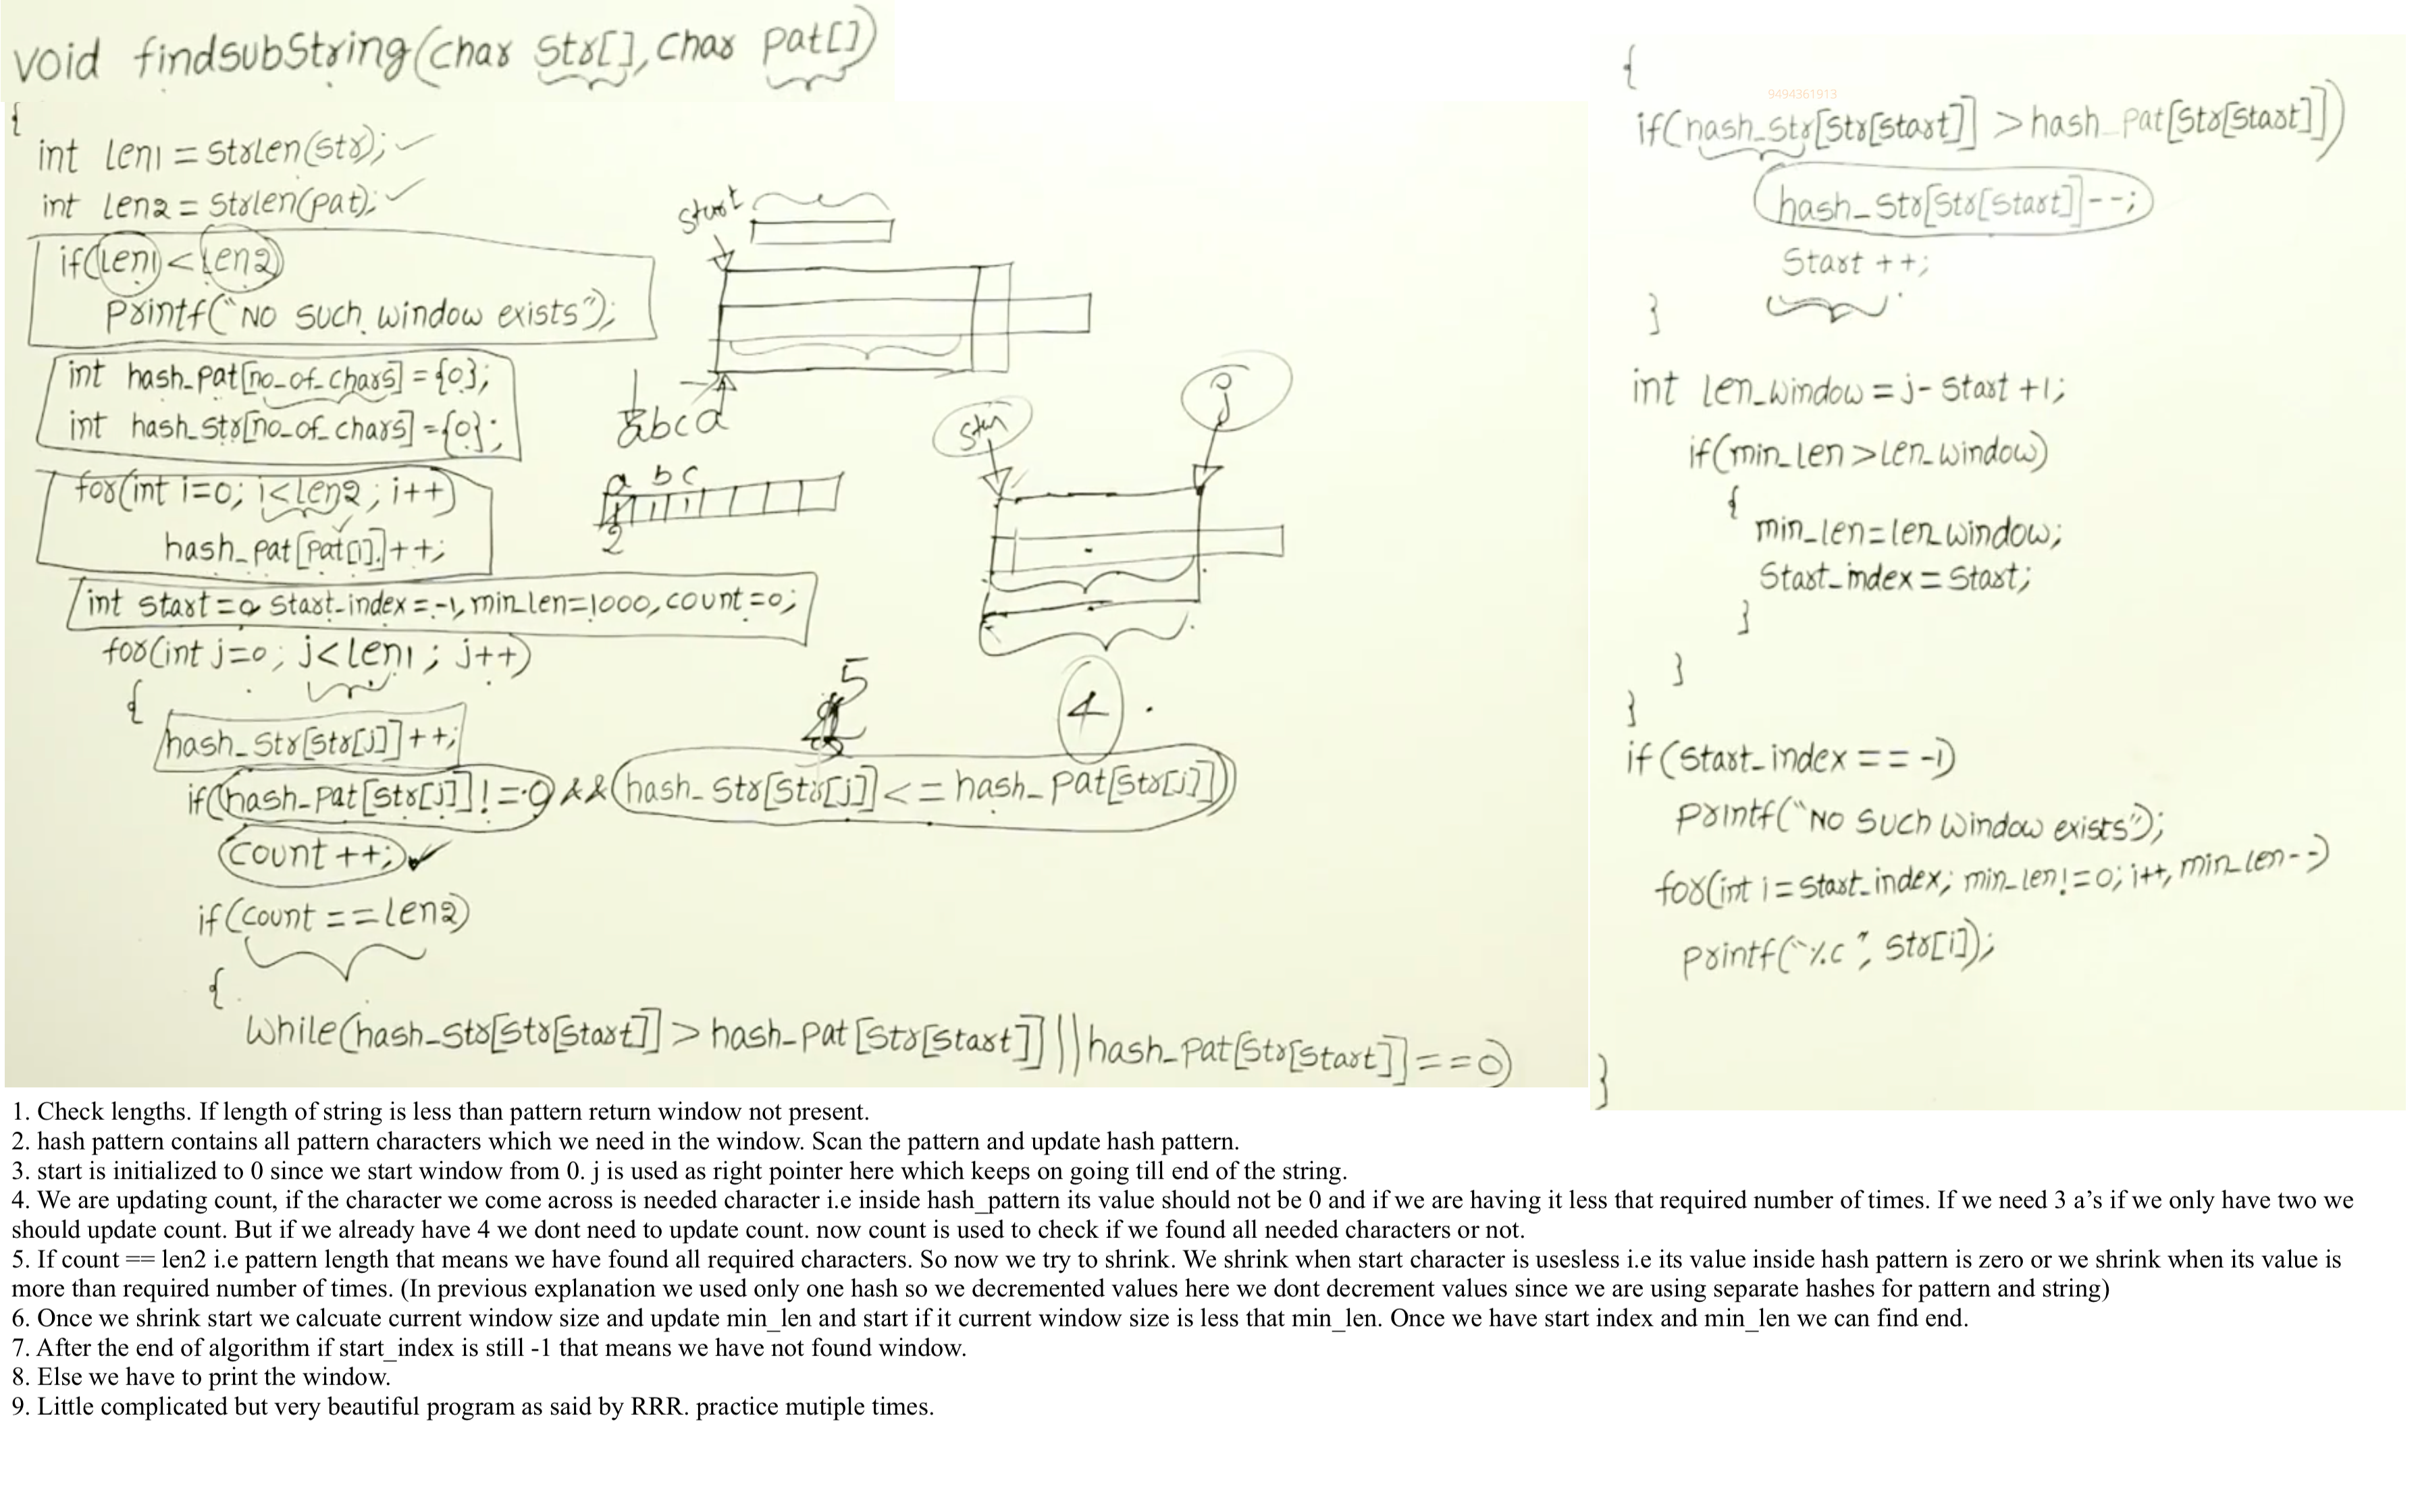 void findsubString(char str[], char pat[])
{
int len1 = strlen(str);
int len2 = strlen(pat);
if(len1 < len2)
printf("No such window exists");
int hash_pat[no_of_chars] = {0};
int hash_str[no_of_chars] = {0};
for(int i=0; i<len2; i++)
hash_pat[pat[i]]++;
int start=0, start_index = -1, min_len=1000, count=0;
for(int j=0; j<len1; j++)
{
hash_str[str[j]]++;
if(hash_pat[str[j]] != 0 && (hash_str[str[j]] <= hash_pat[str[j]]))
count++;
if(count == len2)
{
while(hash_str[str[start]] > hash_pat[str[start]] || hash_pat[str[start]] == 0)
start
abcd
a b c
2
j
5
4
{
9494361913
if(hash_str[str[start]] > hash_pat[str[start]])
hash_str[str[start]]--;
start++;
}
int len_window = j-start+1;
if(min_len > len_window)
{
min_len=len_window;
start_index = start;
}
}
}
if(start_index == -1)
printf("No such window exists");
for(int i=start_index; min_len!=0; i++, min_len--)
printf("%c", str[i]);
}
1. Check lengths. If length of string is less than pattern return window not present.
2. hash pattern contains all pattern characters which we need in the window. Scan the pattern and update hash pattern.
3. start is initialized to 0 since we start window from 0. j is used as right pointer here which keeps on going till end of the string.
4. We are updating count, if the character we come across is needed character i.e inside hash_pattern its value should not be 0 and if we are having it less that required number of times. If we need 3 a’s if we only have two we
should update count. But if we already have 4 we dont need to update count. now count is used to check if we found all needed characters or not.
5. If count == len2 i.e pattern length that means we have found all required characters. So now we try to shrink. We shrink when start character is usesless i.e its value inside hash pattern is zero or we shrink when its value is
more than required number of times. (In previous explanation we used only one hash so we decremented values here we dont decrement values since we are using separate hashes for pattern and string)
6. Once we shrink start we calcuate current window size and update min_len and start if it current window size is less that min_len. Once we have start index and min_len we can find end.
7. After the end of algorithm if start_index is still -1 that means we have not found window.
8. Else we have to print the window.
9. Little complicated but very beautiful program as said by RRR. practice mutiple times.